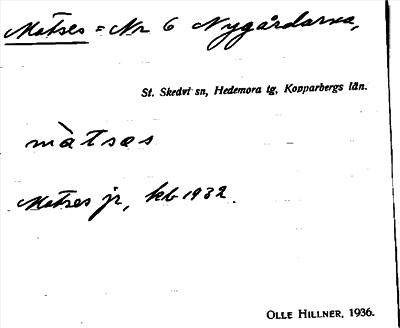 Matses = Nr 6 Nygårdarna,
St. Skedvi sn, Hedemora tg, Kopparbergs län.
màtsas
Matses jr, kb 1932.
OLLE HILLNER, 1936.